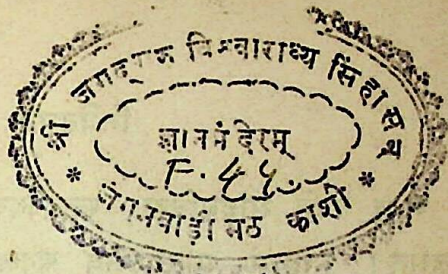 श्री जगद्गुरु विश्वाराध्य सिंहासन
ज्ञानमंदिरम्
F.44..
* जंगमवाडी मठ काशी *